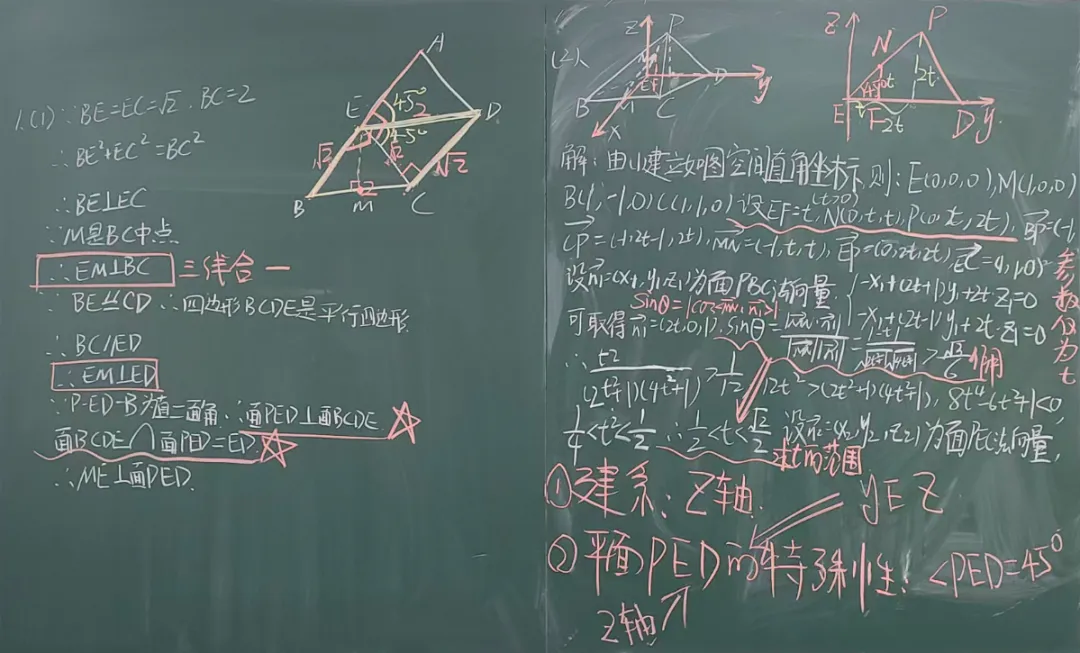 1.(1)∵BE=EC=√2, BC=2
∴BE²+EC²=BC²
∴BE⊥EC
∵M是BC中点
∴EM⊥BC 三线合一
∵BE⫽CD ∴四边形BCDE是平行四边形
∴BC//ED
∴EM⊥ED
∵P-ED-B为直二面角 ∴面PED⊥面BCDE
面BCDE∩面PED=ED
∴ME⊥面PED.
A
E 45° 2 D
45°
√2 √2 √2
2
B M C
(2)、
z P
B E F D y
C
x
z P
N
45° t 2t
E t F 2t D y
解：由(1)建立如图空间直角坐标,则：E(0,0,0),M(1,0,0)
B(1,-1,0)C(1,1,0)设EF=t,(t>0)N(0,t,t),P(0,2t,2t),BP=(-1,
CP=(-1,2t-1,2t),MN=(-1,t,t),EP=(0,2t,2t),EC=(1,1,0)
设n₁=(x₁,y₁,z₁)为面PBC法向量. -x₁+(2t+1)y₁+2t·z₁=0
-x₁+(2t-1)y₁+2t·z₁=0
sinθ=|cos<MN,n₁>|
可取得n₁=(2t,0,1).sinθ=
∴t²/(2t²+1)(4t²+1)>1/12 12t²>(2t²+1)(4t²+1),8t⁴-6t²+1<0,
1/4<t²<1/2 ∴1/2<t<√2/2 设n₂=(x₂,y₂,z₂)为面PEC法向量,
求t的范围
参数仅为t
①建系：Z轴. yEz
②平面PED的特殊性. ∠PED=45°
z轴